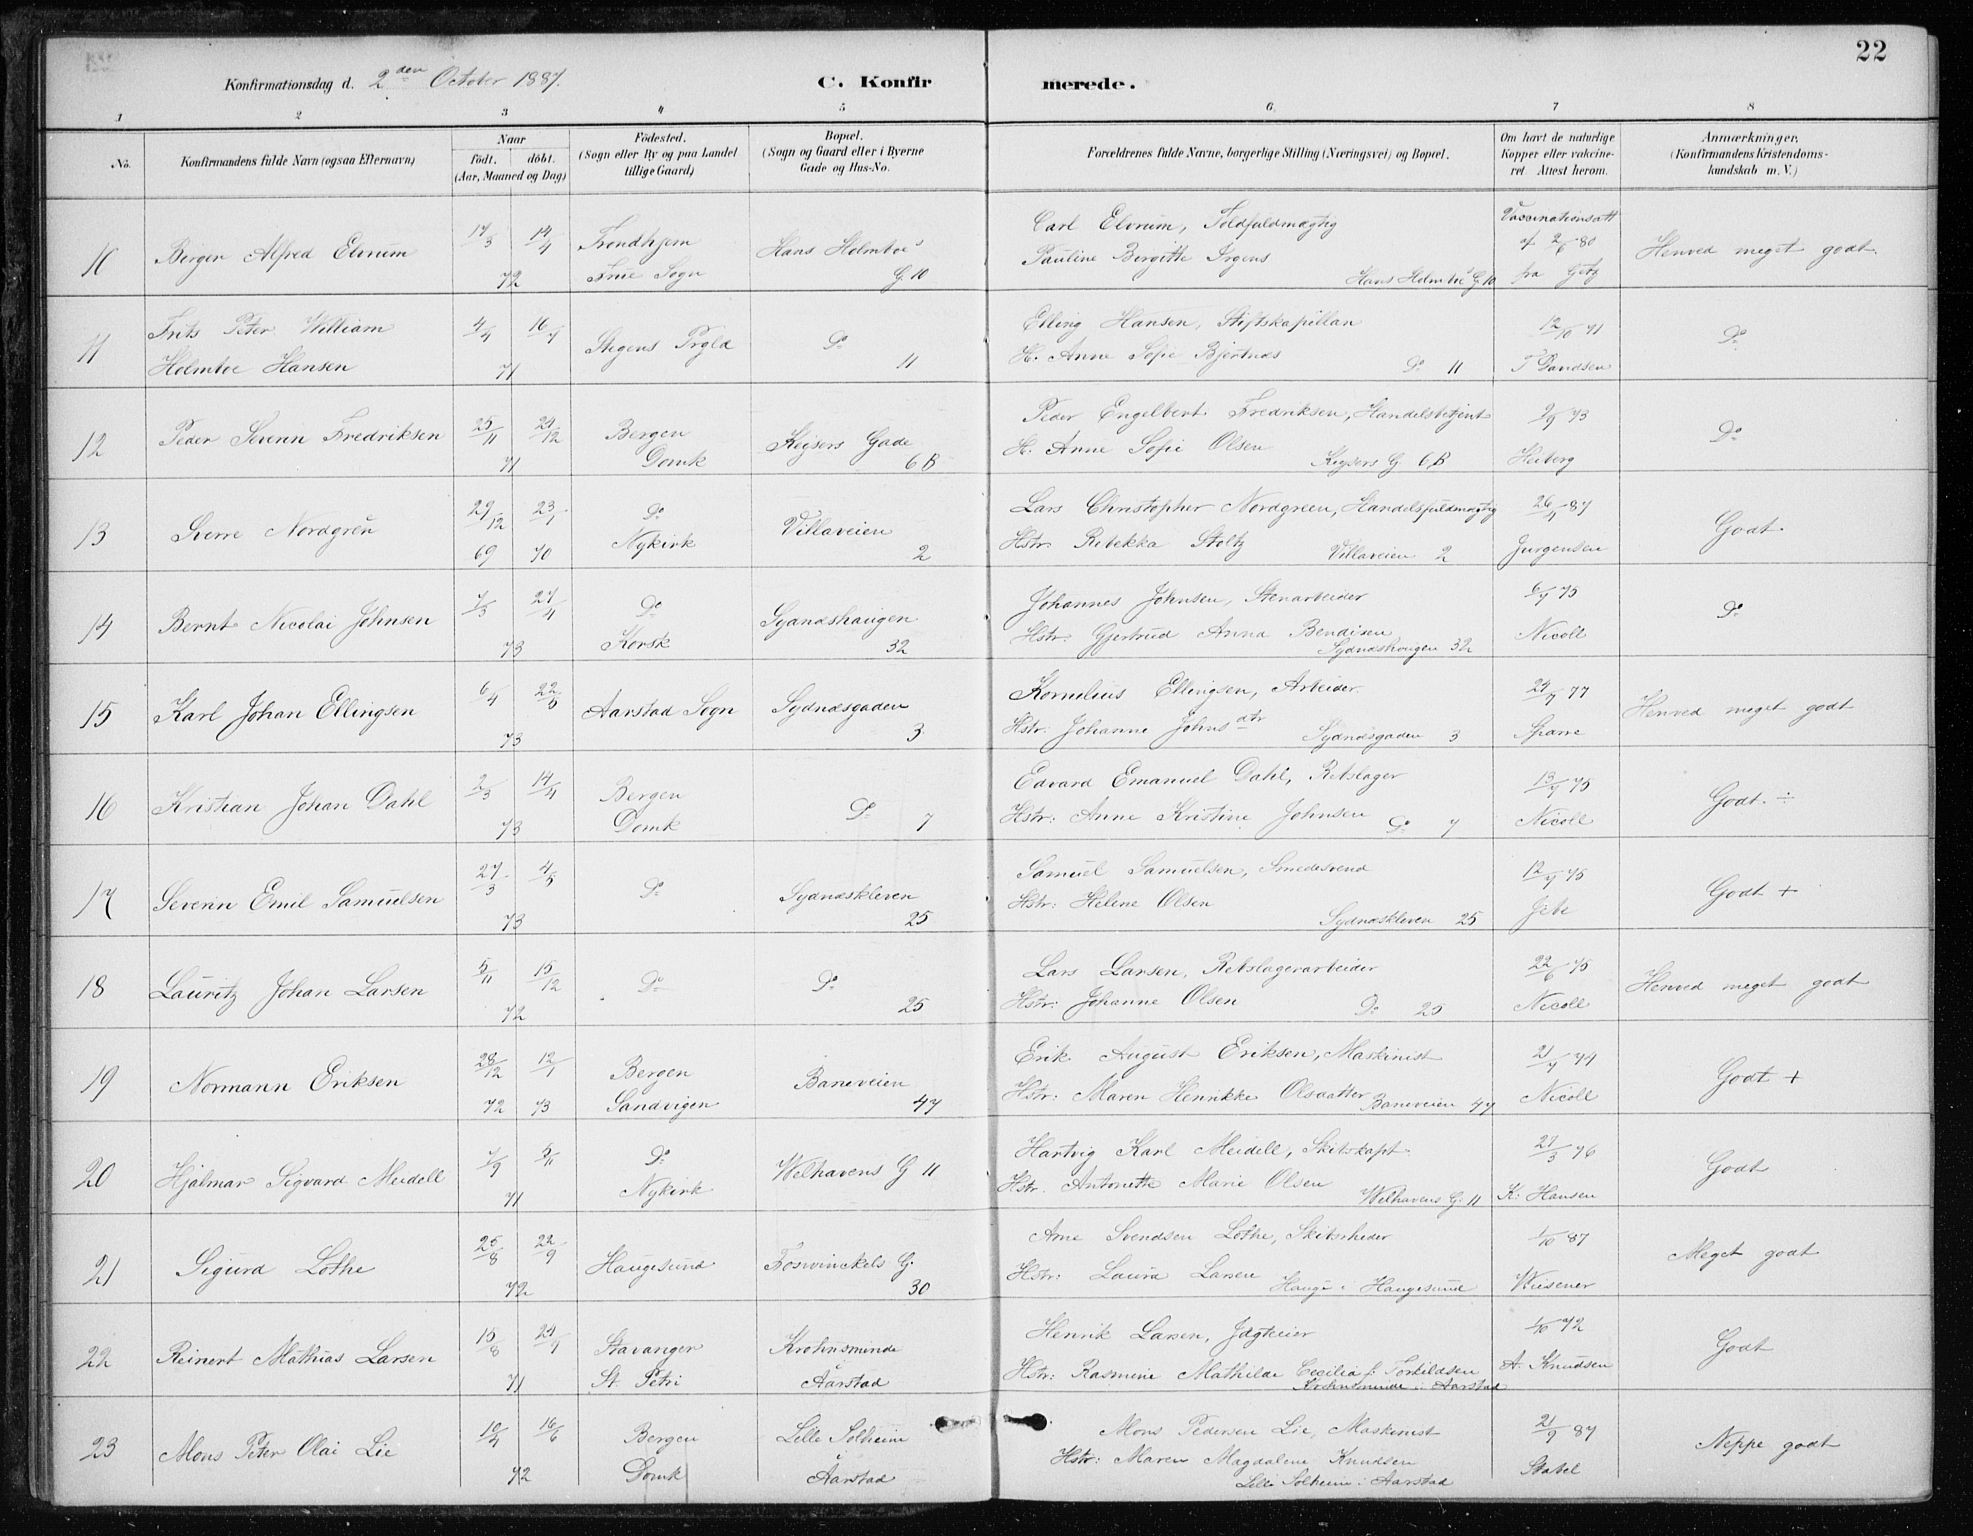 22
Konfirmationsdag d. 2den October 1887.
C. Konfirmerede.
1 2 3 4 5 6. 7 8
No. Konfirmandens fulde Navn (ogsaa Efternavn) Naar födt. döbt. (Aar, Maaned og Dag) Födested. (Sogn eller By og paa Landet tillige Gaard) Bopæl. (Sogn og Gaard eller i Byerne Gade og Hus-No. Forældrenes fulde Navne, borgerlige Stilling (Næringsvei) og Bopæl. Om havt de naturlige Kopper eller vakcineret. Attest herom. Anmærkninger, (Konfirmandens Kristendomskundskab m.V.)
Carl Elvrum, Toldfuldmægtig Vaccinationsatt
Berger Alfred Elvrum 17/3 14/4 Trondhjem Hans Holmboes Pauline Birgitte Irgens af 2/6 80 Henved meget godt
72 Frue Sogn G. 10 Hans Holmboes G. 10 fra Götz
11 Frits Peter William 4/4 16/7 Stegens Prgld Do Elling Hansen, Stiftskapellan 12/10 71 Do
Holmboe Hansen 71 11 H. Anne Sofie Bjertnæs Do 11
12 Peder Severin Fredriksen 25/11 Bergen Keysers Gade Peder Engelbert Fredriksen, Handelsbetjent 2/9 73 Do
71 Domk 6B H. Anne Sofie Olsen Keysers G. 6B Heiberg
13 Sverre Nordgren 29/12 23/1 Do Villaveien Lars Christopher Nordgreen, Handelsfuldmægtig 26/4 87 Godt
69 70 Nykirk 2 Hstr. Rebekka Stoltz Villaveien 2 Jurgensen
14 Bernt Nicolai Johnsen 7/3 27/4 Do Sydnæshaugen Johannes Johnsen, Stenarbeider 6/7 75 Do
73 Korsk 32 Hstr. Gjertrud Anna Bendixen Sydnæshaugen 32 Nicoll
15 Karl Johan Ellingsen 6/4 22/5 Aarstad Sogn Sydnæsgaden Kornelius Ellingsen, Arbeider. 24/7 77 Henved meget godt
73 3 Hstr. Johanne Johnsdtr Sydnæsgaden 3 Sparre
16 Kristian Johan Dahl 2/3 14/4 Bergen Do Edvard Emanuel Dahl, Rebslager 13/7 75 Godt. ÷
73 Domk 7 Hstr: Anne Kristine Johnsen Do 7 Nicoll
17 Severin Emil Samuelsen 27/3 4/5 Do Sydnæskleven Samuel Samuelsen, Smedesvend 12/7 75 Godt +
73 25 Hstr: Helene Olsen Sydnæskleven 25 Jebe
18 Lauritz Johan Larsen 5/11 15/12 Do Do Lars Larsen, Rebslagerarbeider 22/6 75 Henved meget godt
72 25 Hstr: Johanne Olsen Do 25 Nicoll
19 Normann Eriksen 28/12 12/1 Bergen Baneveien Erik August Eriksen, Maskinist 21/7 74 Godt +
72 73 Sandvigen 47 Hstr: Maren Henrikke Olsdatter Baneveien 47 Nicoll
20 Hjalmar Sigvard Meidell 7/9 5/11 Do Welhavens G 11 Hartvig Karl Meidell, Skibskapt. 27/3 76 Godt
71 Nykirk Hstr. Antonette Marie Olsen Welhavens G. 11 K: Hansen
21 Sigurd Lothe 25/8 22/9 Haugesund Foswinckels G. Arne Svendsen Lothe, Skibsrheder 1/10 87 Meget godt
72 30 Hstr: Laura Larsen Hauge i Haugesund Wiesener
22 Reinert Mathias Larsen 15/8 24/9 Stavanger Krohnsminde Henrik Larsen, Jægteier 1/10 72 Godt
71 St. Petri Aarstad Hstr: Rasmine Mathilde Cecilia f: Torkildsen A. Knudsen
Krohnsminde i Aarstad
23 Mons Peter Olai Lie 10/4 16/6 Bergen Lille Solheim Mons Pedersen Lie, Maskinist 21/9 87 Neppe godt
72 Domk Aarstad Hstr: Maren Magdalene Knudsen Stabel
Lille Solheim i Aarstad